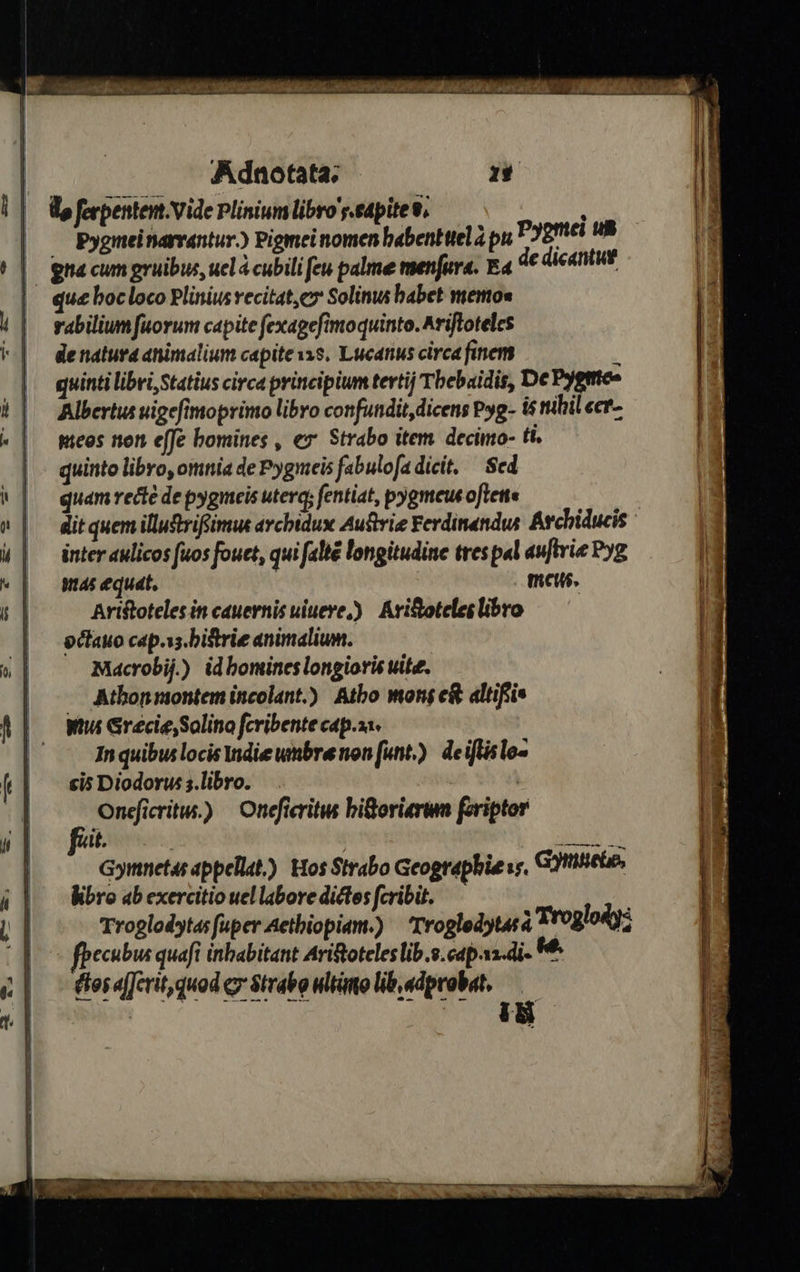 Adnotata. 15
lo ſerpentem. Vide Plinium libro 7. capite 8.
Pygmei narrantur.) Pigmei nomen habent uel à pu
gna cum gruibus, uel à cubili ſeu palme menſura. Ea
que hoc loco Plinius recitat, & Solinus habet memo⸗
rabilium ſuorum capite ſexageſimoquinto. Ariſtoteles
de natura animalium capite 128. Lucanus circa finem
quinti libri, Statius circa principium tertij Thebaidis,
Albertus uigeſimoprimo libro confundit, dicens Pyg-
meos non eſſe homines, & Strabo item decimo-
quinto libro, omnia de Pygmeis fabuloſa dicit. Sed
quam rectè de pygmeis uterq; ſentiat, pygmeus oſten⸗
dit quem illuſtriſsimus archidux Auſtrie Ferdinandus
inter aulicos ſuos fouet, qui ſaltē longitudine tres pal
mas equat.
Ariſtoteles in cauernis uiuere.) Ariſtoteles libro
octauo cap. 13. hiſtrie animalium.
Macrobij.) id homines longioris uite.
Athon montem incolant.) Atho mons eſt altiſsi⸗
mus Grecie, Solino ſcribente cap. 21.
In quibus locis Indie umbre non ſunt.) de iſtis lo⸗
cis Diodorus 3. libro.
Oneſicritus.) Oneſicritus hiſtoriarum ſcriptor
fuit.
Gymnetas appellat.) Hos Strabo Geographie 15.
libro ab exercitio uel labore dictos ſcribit.
Troglodytas ſuper Aethiopiam.) Troglodytas à
ſpecubus quaſi inhabitant Ariſtoteles lib. 8. cap. 12. di-
ctos aſſerit, quod & Strabo ultimo lib. adprobat.
IN
Pygmei un
de dicantur
De Pygme⸗
is nihil cer-
ti.
Archiducis
auſtrie Pyg
meus.
Gymnete.
Troglody;
te.